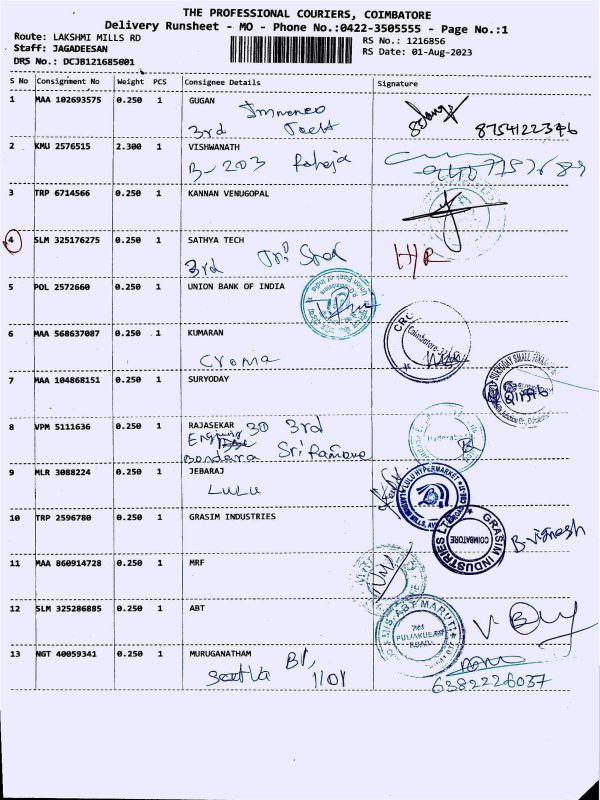 THE PROFESSIONAL COURIERS, COIMBATORE
Delivery Runsheet - MO - Phone No.:0422-3505555 - Page No.:1
Route: LAKSHMI MILLS RD
RS No.: 1216856
Staff: JAGADEESAN
RS Date: 01-Aug-2023
DRS No.: DCJB121685601
S No Consignment No Weight PCS Consignee Details Signature
1 MAA 102693575 0.250 1 GUGAN
3rd 8754122346
2 KMU 2576515 2.300 1 VISHWANATH
B-203 Raheja
3 TRP 6714566 0.250 1 KANNAN VENUGOPAL
4 SLM 325176275 0.250 1 SATHYA TECH
3rd H/R
5 POL 2572660 0.250 1 UNION BANK OF INDIA
6 MAA 568637087 0.250 1 KUMARAN
Croma
7 MAA 104868151 0.250 1 SURYODAY
8 VPM 5111636 0.250 1 RAJASEKAR 3D 3rd
Bandara
9 MLR 3088224 0.250 1 JEBARAJ
LULU
LULU HYPERMARKET
10 TRP 2596780 0.250 1 GRASIM INDUSTRIES
GRASIM INDUSTRIES LTD
COIMBATORE
B. Vignesh
11 MAA 860914728 0.250 1 MRF
12 SLM 325286885 0.250 1 ABT
ABT MARUTI
ROAD
13 NGT 40059341 0.250 1 MURUGANATHAM
1101
6382226037